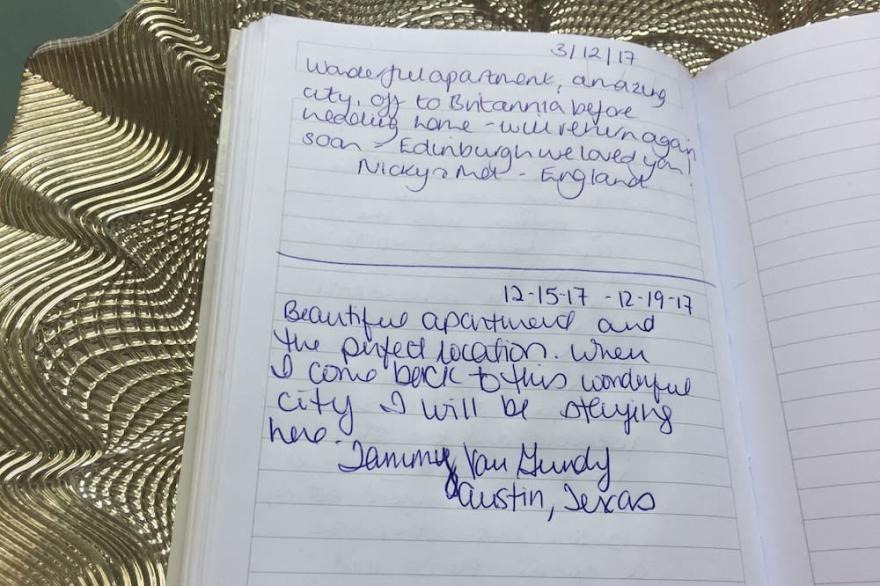 3/12/17
Wonderful apartment, amazing
city, off to Britannia before
heading home - will return again
soon - Edinburgh we loved you!
Nicky & - England
12-15-17 - 12-19-17
Beautiful apartment and
the perfect location. When
I come back to this wonderful
city I will be staying
here.
Tammy Van Gundy
Austin, Texas